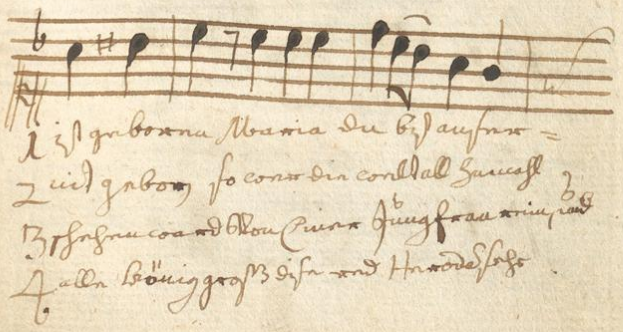 1 ist geboren Maria du bist außer=
2 nit geborn so wer die welt all zumahl
3 schehen ward Von Einer Jungfraw rein, und
4 alle König groß dise red Herodes sehr